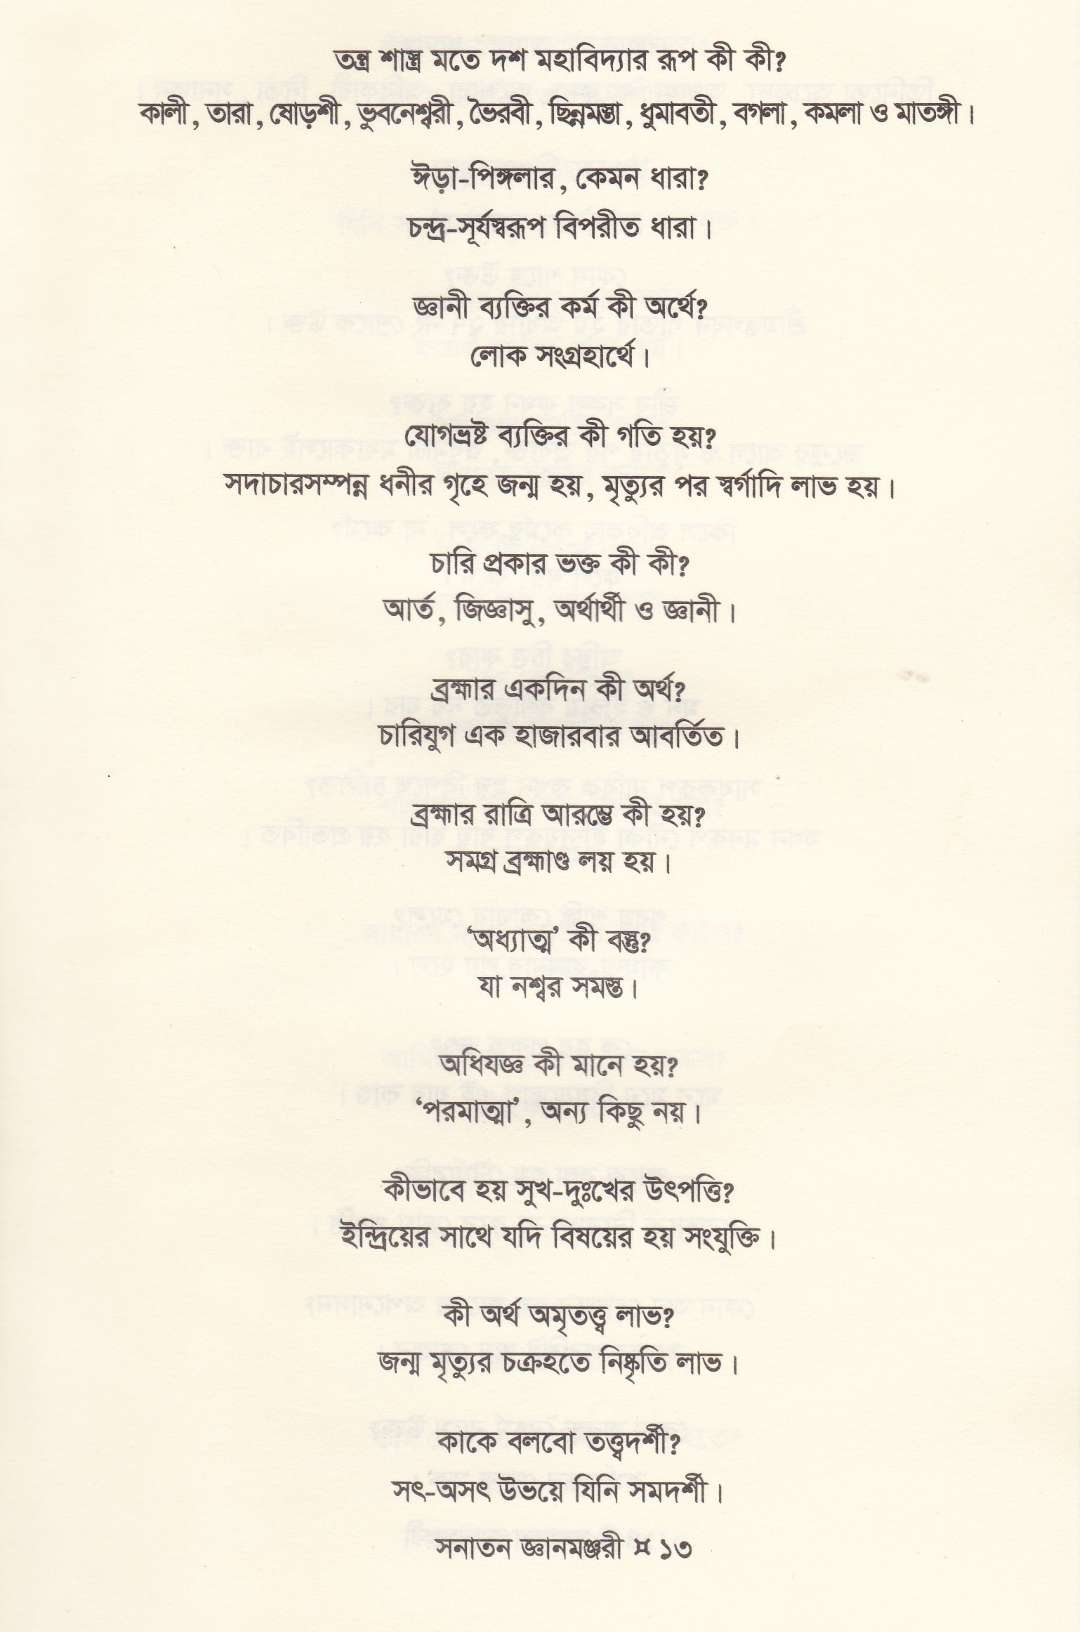 তন্ত্র শাস্ত্র মতে দশ মহাবিদ্যার রূপ কী কী?
কালী, তারা, ষোড়শী, ভুবনেশ্বরী, ভৈরবী, ছিন্নমস্তা, ধুমাবতী, বগলা, কমলা ও মাতঙ্গী।
ঈড়া-পিঙ্গলার, কেমন ধারা?
চন্দ্র-সূর্যস্বরূপ বিপরীত ধারা।
জ্ঞানী ব্যক্তির কর্ম কী অর্থে?
লোক সংগ্রহার্থে।
যোগভ্রষ্ট ব্যক্তির কী গতি হয়?
সদাচারসম্পন্ন ধনীর গৃহে জন্ম হয়, মৃত্যুর পর স্বর্গাদি লাভ হয়।
চারি প্রকার ভক্ত কী কী?
আর্ত, জিজ্ঞাসু, অর্থার্থী ও জ্ঞানী।
ব্রহ্মার একদিন কী অর্থ?
চারিযুগ এক হাজারবার আবর্তিত।
ব্রহ্মার রাত্রি আরম্ভে কী হয়?
সমগ্র ব্রহ্মাণ্ড লয় হয়।
‘অধ্যাত্ম’ কী বস্তু?
যা নশ্বর সমস্ত।
অধিযজ্ঞ কী মানে হয়?
‘পরমাত্মা’, অন্য কিছু নয়।
কীভাবে হয় সুখ-দুঃখের উৎপত্তি?
ইন্দ্রিয়ের সাথে যদি বিষয়ের হয় সংযুক্তি।
কী অর্থ অমৃতত্ত্ব লাভ?
জন্ম মৃত্যুর চক্রহতে নিষ্কৃতি লাভ।
কাকে বলবো তত্ত্বদর্শী?
সৎ-অসৎ উভয়ে যিনি সমদর্শী।
সনাতন জ্ঞানমঞ্জরী ¤ ১৩